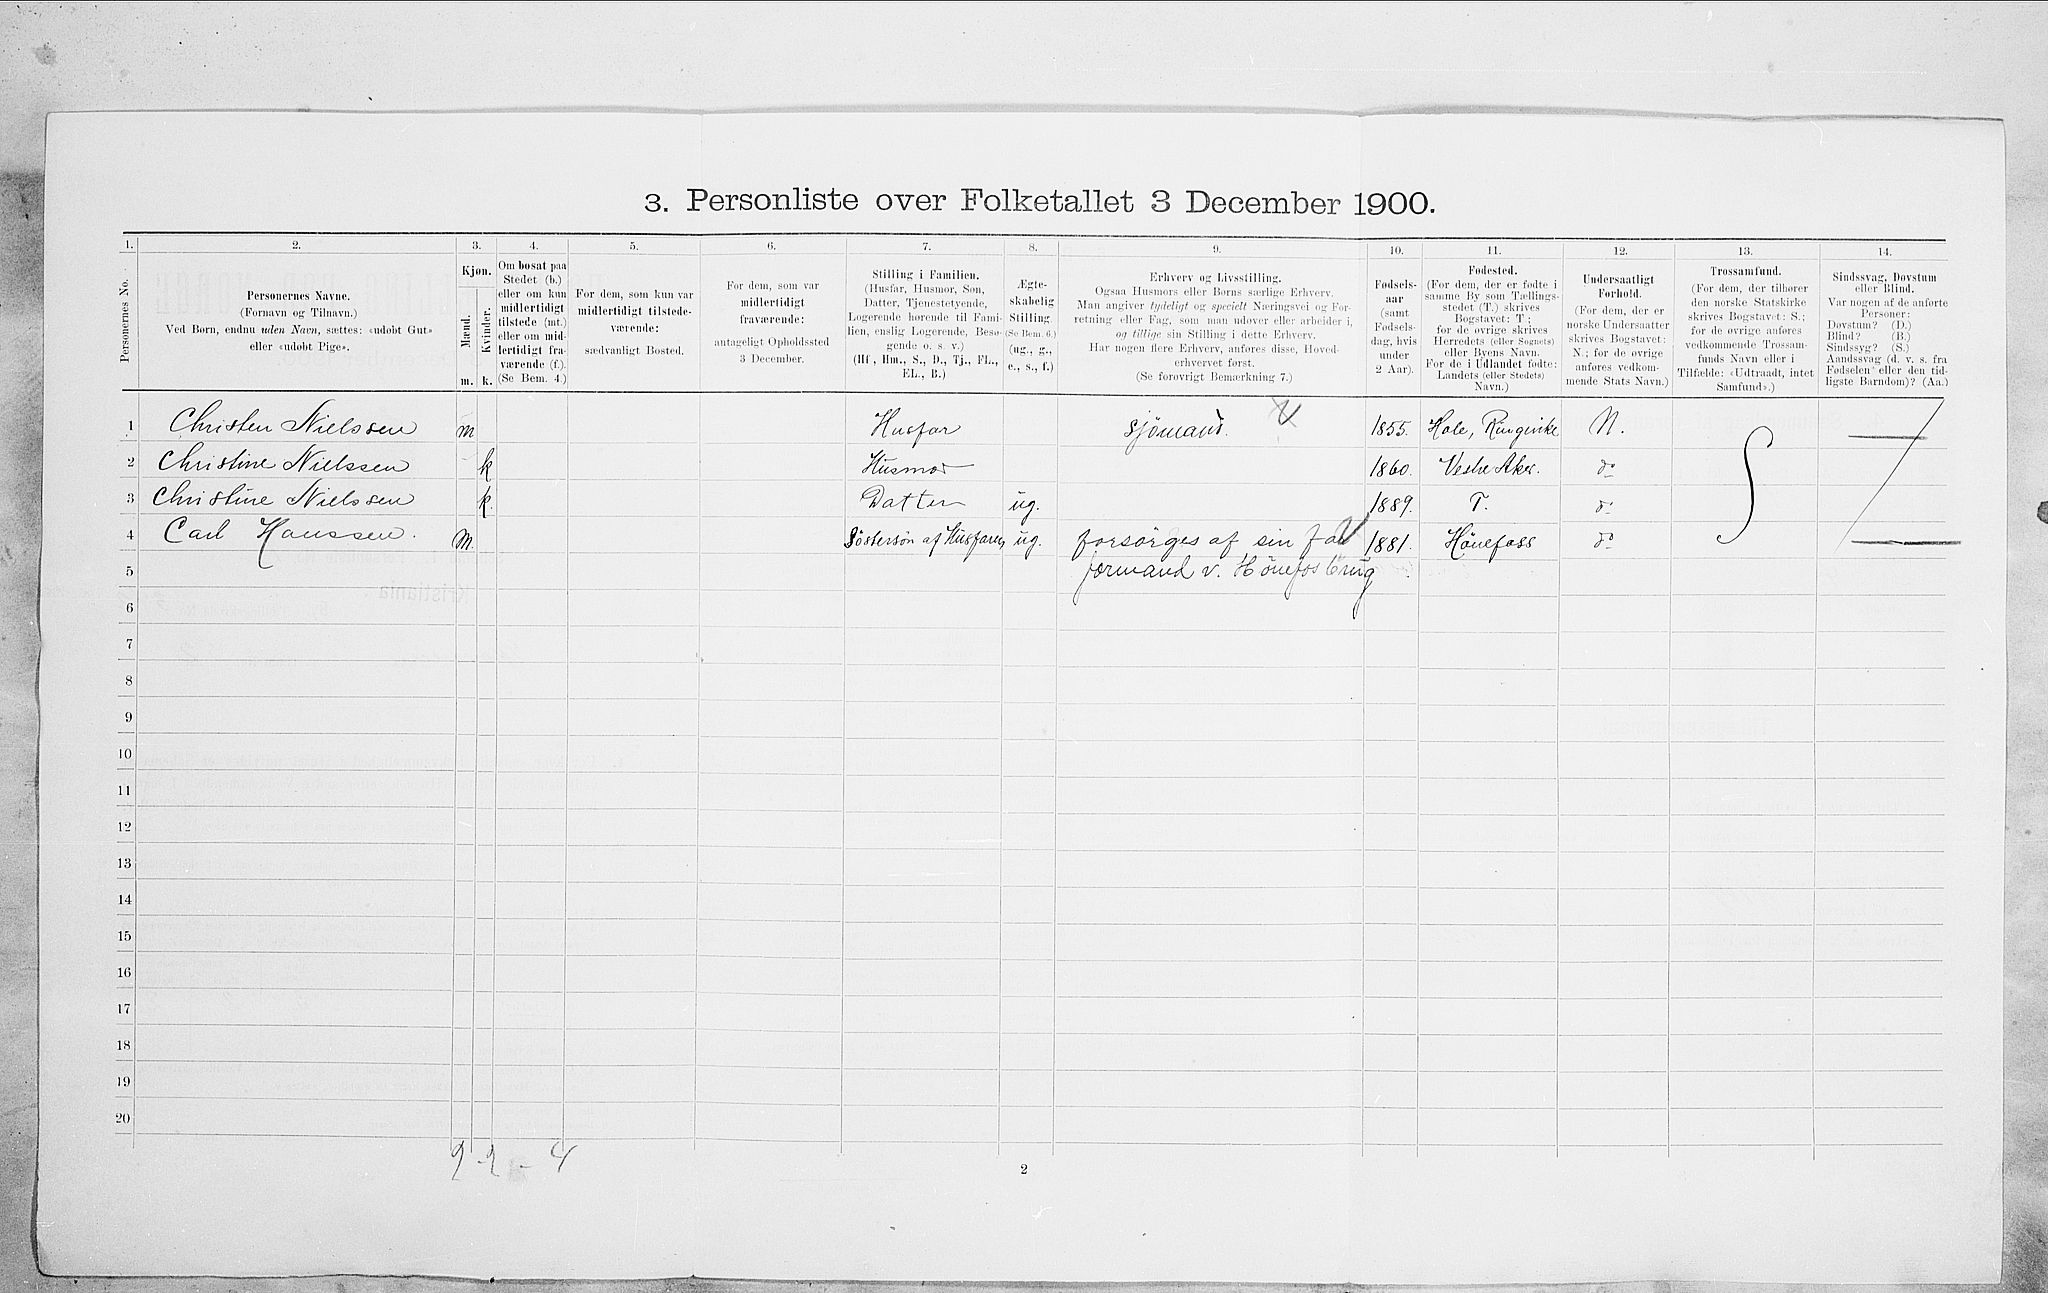 3. Personliste over Folketallet 3 December 1900.
1. 2. 3. 4. 5. 6. 7. 8. 9. 10. 11. 12. 13. 14.
Personernes No.
Personernes Navne.
(Fornavn og Tilnavn.)
Ved Børn, endnu uden Navn, sættes: «udøbt Gut»
eller «udøbt Pige».
Kjøn.
Mænd.
Kvinder.
m. k.
Om bosat paa
Stedet (b.)
eller om kun
midlertidigt
tilstede (mt.)
eller om mid-
lertidigt fra-
værende (f.).
(Se Bem. 4.)
For dem, som kun var
midlertidigt tilstede-
værende:
sædvanligt Bosted.
For dem, som var
midlertidigt
fraværende:
antageligt Opholdssted
3 December.
Stilling i Familien.
(Husfar, Husmor, Søn,
Datter, Tjenestetyende,
Logerende hørende til Fami-
lien, enslig Logerende, Besø-
gende o. s. v.)
(Hf., Hm., S., D., Tj., FL.,
EL., B.)
Ægte-
skabelig
Stilling.
(Se Bem. 6.)
(ug., g.,
e., s., f.)
Erhverv og Livsstilling.
Ogsaa Husmors eller Børns særlige Erhverv.
Man angiver tydeligt og specielt Næringsvei og For-
retning eller Fag, som man udøver eller arbeider i,
og tillige sin Stilling i dette Erhverv.
Har nogen flere Erhverv, anføres disse, Hoved-
erhvervet først.
(Se forøvrigt Bemærkning 7.)
Fødsels-
aar
(samt
Fødsels-
dag, hvis
under
2 Aar).
Fødested.
(For dem, der er fødte i
samme By som Tællings-
stedet (T.) skrives
Bogstavet: T.;
for de øvrige skrives
Herredets (eller Sognets)
eller Byens Navn.
For de i Udlandet fødte:
Landets (eller Stedets)
Navn.)
Undersaatligt
Forhold.
(For dem, der er
norske Undersaatter
skrives Bogstavet:
N.; for de øvrige
anføres vedkom-
mende Stats Navn.)
Trossamfund.
(For dem, der tilhører
den norske Statskirke
skrives Bogstavet: S.;
for de øvrige anføres
vedkommende Trossam-
funds Navn eller i
Tilfælde: «Udtraadt, intet
Samfund».)
Sindssvag, Døvstum
eller Blind.
Var nogen af de anførte
Personer:
Døvstum? (D.)
Blind? (B.)
Sindssyg? (S.)
Aandssvag (d. v. s. fra
Fødselen eller den tid-
ligste Barndom)? (Aa.)
1 Christen Nielssen m Husfar Sjömand. 1855. Hole, Ringerike N. S
2 Christine Nielssen k Husmor 1860. Vestre Aker. do
3 Christine Nielssen k. Datter ug. 1889. T. do
4 Carl Hanssen. m. Söstersön af Husfaren ug. forsörges af sin far 1881. Hönefoss do
5 formand v. Hönefos brug
6
7
8
9
10
11
12
13
14
15
16
17
18
19
20
2 - 2 - 4
2